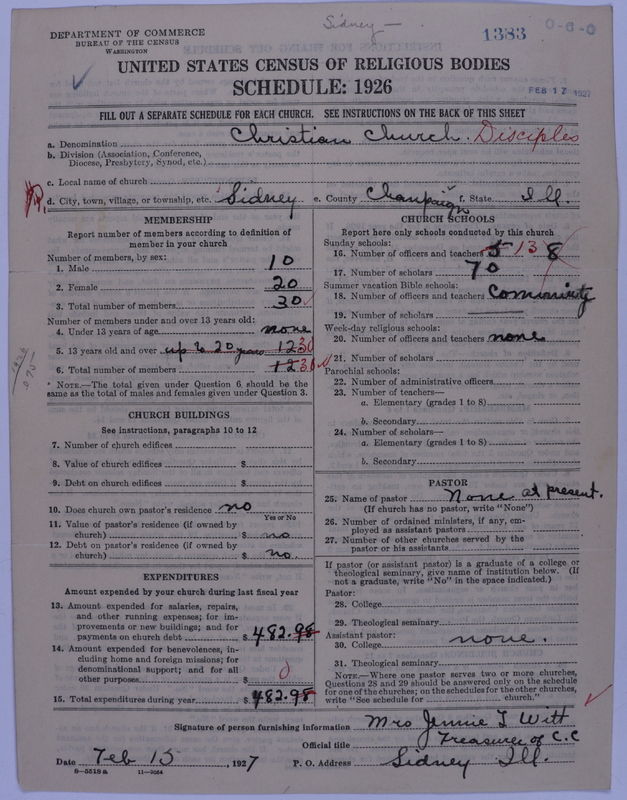 Sidney —
DEPARTMENT OF COMMERCE
BUREAU OF THE CENSUS
WASHINGTON
1383
0-6-0
UNITED STATES CENSUS OF RELIGIOUS BODIES
SCHEDULE: 1926
FEB 17 1927
FILL OUT A SEPARATE SCHEDULE FOR EACH CHURCH. SEE INSTRUCTIONS ON THE BACK OF THIS SHEET
a. Denomination Christian Church. Disciples
b. Division (Association, Conference,
Diocese, Presbytery, Synod, etc.)
c. Local name of church
d. City, town, village, or township, etc. Sidney e. County Champaign f. State Ill.
MEMBERSHIP
Report number of members according to definition of
member in your church
Number of members, by sex:
1. Male 10
2. Female 20
3. Total number of members 30
Number of members under and over 13 years old:
4. Under 13 years of age none
5. 13 years old and over up to 20 years 12 30
6. Total number of members 12 30
* NOTE.—The total given under Question 6 should be the
same as the total of males and females given under Question 3.
CHURCH BUILDINGS
See instructions, paragraphs 10 to 12
7. Number of church edifices
8. Value of church edifices $
9. Debt on church edifices $
10. Does church own pastor's residence no
Yes or No
11. Value of pastor's residence (if owned by
church) $ no
12. Debt on pastor's residence (if owned by
church) $ no.
EXPENDITURES
Amount expended by your church during last fiscal year
13. Amount expended for salaries, repairs,
and other running expenses; for im-
provements or new buildings; and for
payments on church debt $ 482.98
14. Amount expended for benevolences, in-
cluding home and foreign missions; for
denominational support; and for all
other purposes $ 0
15. Total expenditures during year $ 482.98
CHURCH SCHOOLS
Report here only schools conducted by this church
Sunday schools:
16. Number of officers and teachers 5 13 8
17. Number of scholars 70
Summer vacation Bible schools:
18. Number of officers and teachers Community
19. Number of scholars
Week-day religious schools:
20. Number of officers and teachers none
21. Number of scholars
Parochial schools:
22. Number of administrative officers
23. Number of teachers—
a. Elementary (grades 1 to 8)
b. Secondary
24. Number of scholars—
a. Elementary (grades 1 to 8)
b. Secondary
PASTOR
25. Name of pastor None at present.
(If church has no pastor, write "None")
26. Number of ordained ministers, if any, em-
ployed as assistant pastors
27. Number of other churches served by the
pastor or his assistants
If pastor (or assistant pastor) is a graduate of a college or
theological seminary, give name of institution below. (If
not a graduate, write "No" in the space indicated.)
Pastor:
28. College
29. Theological seminary
Assistant pastor:
30. College none.
31. Theological seminary
NOTE.—Where one pastor serves two or more churches,
Questions 28 and 29 should be answered only on the schedule
for one of the churches; on the schedules for the other churches,
write "See schedule for church."
Signature of person furnishing information Mrs Jennie I Witt
Official title Treasurer of C.C
Date Feb 15, 1927 P. O. Address Sidney Ill.
8—5518a 11—9064